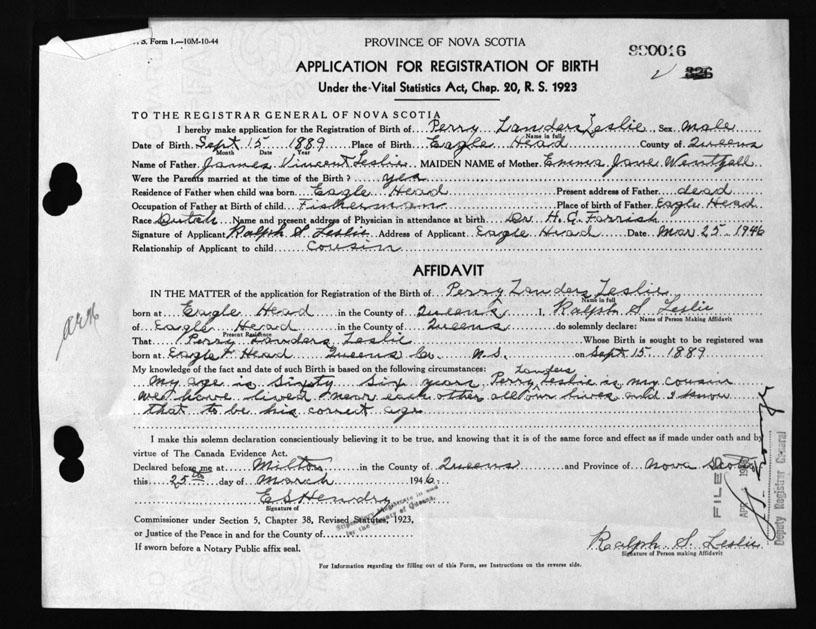 S. Form 1.—10M-10-44
PROVINCE OF NOVA SCOTIA
990016
326
APPLICATION FOR REGISTRATION OF BIRTH
Under the Vital Statistics Act, Chap. 20, R. S. 1923
TO THE REGISTRAR GENERAL OF NOVA SCOTIA
I hereby make application for the Registration of Birth of Perry Landers Leslie Sex Male
Name in full
Date of Birth Sept 15 1889 Place of Birth Eagle Head County of Queens
Month Date Year
Name of Father James Vincent Leslie MAIDEN NAME of Mother Emma Jane Wentzell
Were the Parents married at the time of Birth? yes
Residence of Father when child was born Eagle Head Present address of Father dead
Occupation of Father at Birth of child Fisherman Place of birth of Father Eagle Head
Race Dutch Name and present address of Physician in attendance at birth Dr H. G. Farrish
Signature of Applicant Ralph S. Leslie Address of Applicant Eagle Head Date Mar 25 1946
Relationship of Applicant to child Cousin
AFFIDAVIT
IN THE MATTER of the application for Registration of the Birth of Perry Landers Leslie
Name in full
born at Eagle Head in the County of Queens I, Ralph S. Leslie
Name of Person Making Affidavit
of Eagle Head in the County of Queens do solemnly declare:
Present Residence
That Perry Landers Leslie Whose Birth is sought to be registered was
born at Eagle Head Queens Co. N.S. on Sept 15 1889
My knowledge of the fact and date of such Birth is based on the following circumstances:
My age is Sixty Six years Perry Landers Leslie is my cousin
We have lived near each other all our lives and I know
that to be his correct age
I make this solemn declaration conscientiously believing it to be true, and knowing that it is of the same force and effect as if made under oath and by
virtue of The Canada Evidence Act.
Declared before me at Milton in the County of Queens and Province of Nova Scotia
this 25th day of March 1946.
E S Hendry
Signature of
Stipendiary Magistrate in and
for the County of Queens.
Commissioner under Section 5, Chapter 38, Revised Statutes, 1923,
or Justice of the Peace in and for the County of
If sworn before a Notary Public affix seal.
Ralph S. Leslie
Signature of Person making Affidavit
FILED
APR
Deputy Registrar General
For Information regarding the filling out of this Form, see Instructions on the reverse side.